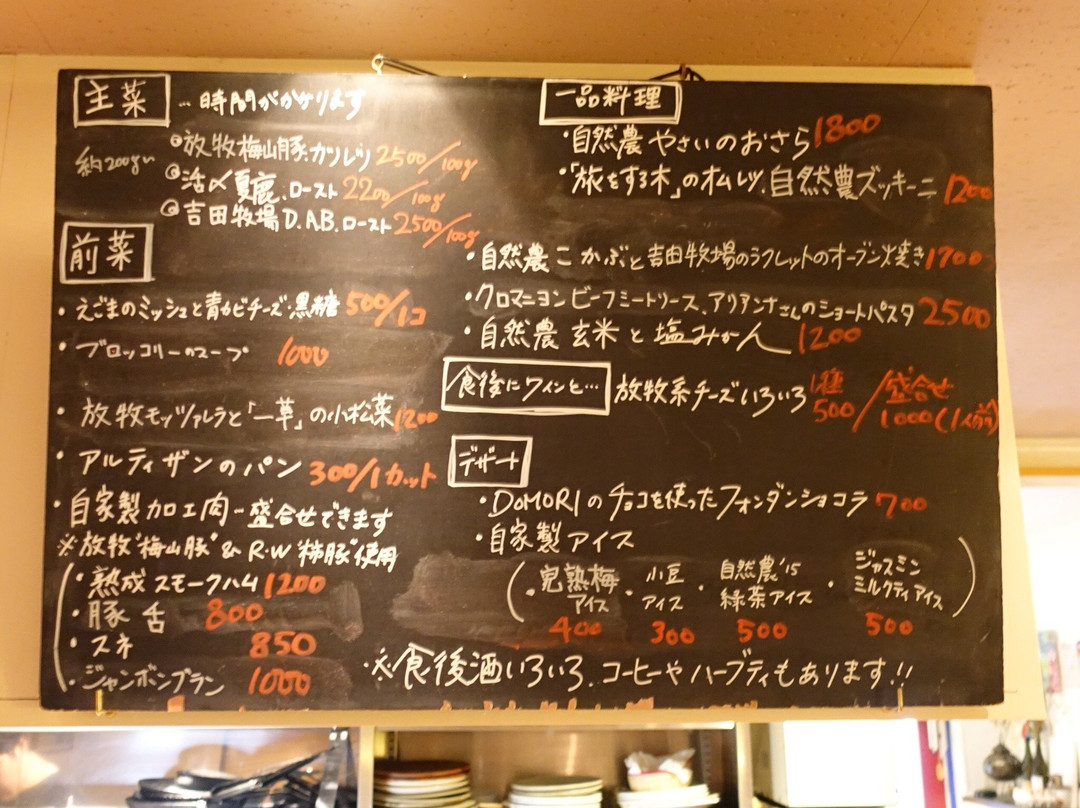 主菜 …時間がかかります
約200gい
放牧梅山豚.カツレツ 2500/100g
活〆夏鹿.ロースト 2200/100g
吉田牧場D.A.B.ロースト 2500/100g
前菜
・えごまのミッシュと青カビチーズ・黒糖 500/1コ
・ブロッコリーのスープ 1000
・放牧モッツァレラと「一草」の小松菜 1200
・アルティザンのパン 300/1カット
・自家製加工肉-盛合せできます
※放牧"梅山豚"& R・W"柿豚"使用
・熟成スモークハム 1200
・豚舌 800
・スネ 850
・ジャンボンブラン 1000
一品料理
・自然農やさいのおさら 1800
・「旅をする木」のオムレツ.自然農ズッキーニ 1200
・自然農こかぶと吉田牧場のラクレットのオーブン焼き 1700
・クロマニヨンビーフミートソース、アリアンナさんのショートパスタ 2500
・自然農玄米と塩みかん 1200
食後にワインと… 放牧系チーズいろいろ 1種500/盛合せ1000(1人前)
デザート
・DOMORIのチョコを使ったフォンダンショコラ 700
・自家製アイス
・完熟梅アイス 400
・小豆アイス 300
・自然農'15緑茶アイス 500
・ジャスミンミルクティアイス 500
※食後酒いろいろ.コーヒーやハーブティもあります!!